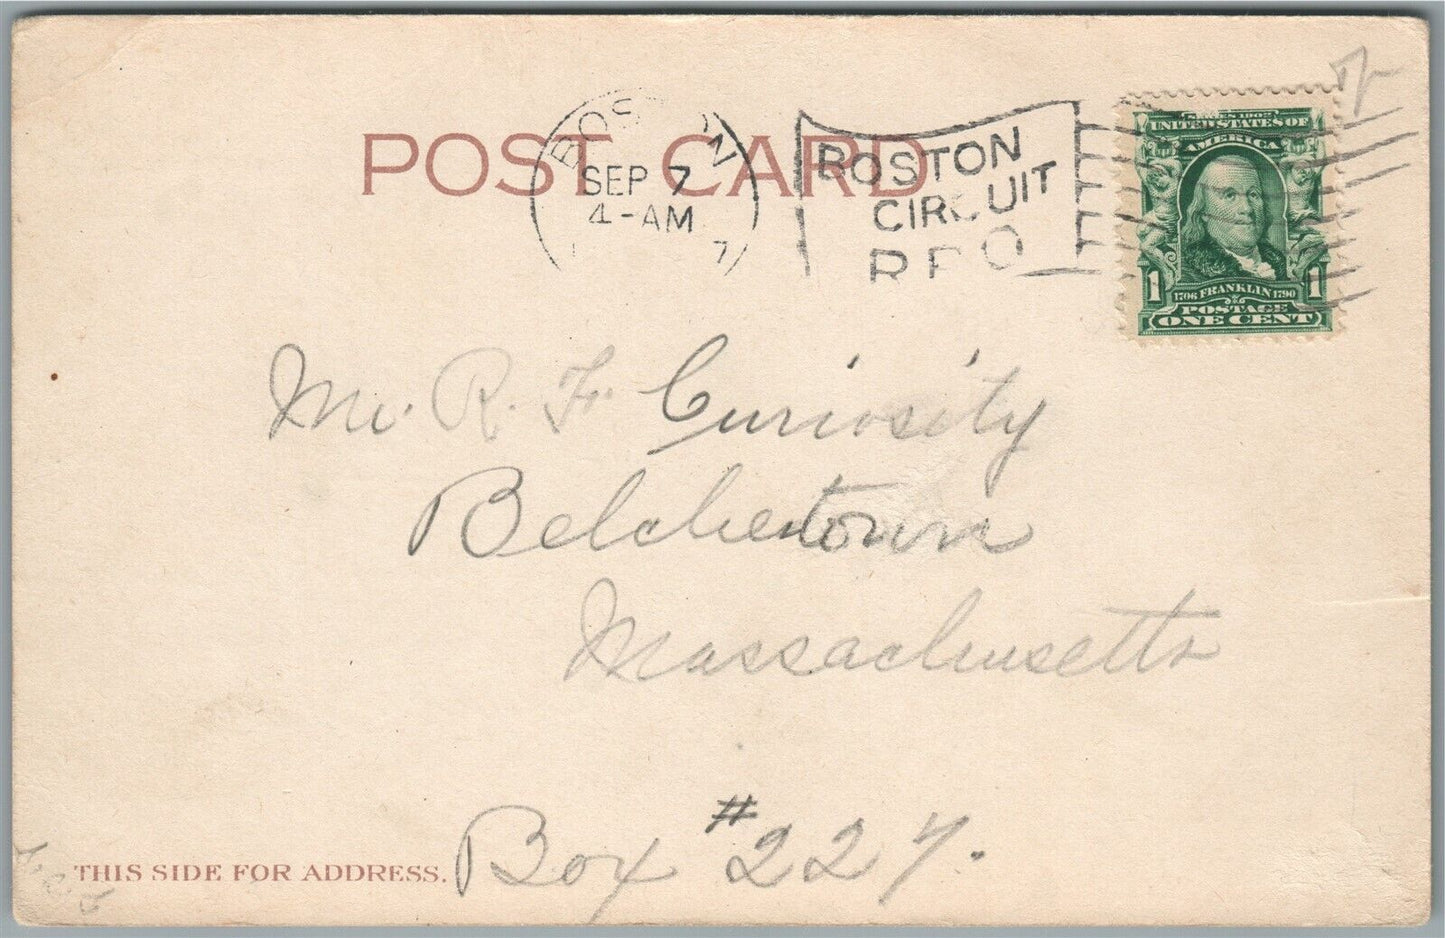 POST CARD
BOSTON
SEP 7
4-AM
7
BOSTON
CIRCUIT
R.P.O
UNITED STATES OF
AMERICA
1 1
1706 FRANKLIN 1790
POSTAGE
ONE CENT
Mr. R. F. Curiosity
Belchertown
Massachusetts
Box #227.
THIS SIDE FOR ADDRESS.